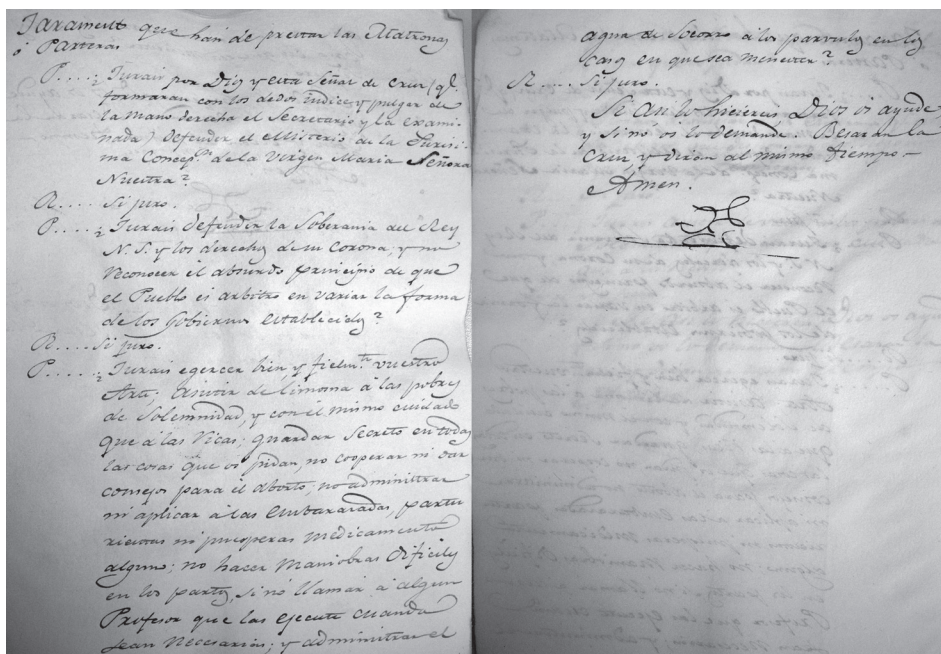 Jurament.º que han de prestar las Matronas
ó Parteras
P....¿ Jurais por Dios y esta Señal de Cruz (q.e
formaran con los dedos indice, y pulger de
la mano derecha el Secretario y la exami-
nada) defender el Misterio de la Purisi-
ma Concep.on de la Virgen Maria Señora
Nuestra?
R.... Si juro.
P....¿ Jurais defender la Soberania del Rey
N. S. y los derechos de su Corona, y no
reconocer el absurdo principio de que
el Pueblo es arbitro en variar la forma
de los Gobiernos establecidos?
R.... Si juro.
P....¿ Jurais egercer bien y fielm.te vuestro
Arte; asistir de limosna a las pobres
de Solemnidad, y con el mismo cuidado
que a las Ricas; guardar Secreto en todas
las cosas que os pidan, no cooperar ni dar
consejos para el aborto, no administrar
ni aplicar á las embarazadas, partu
rientas ni puerperas medicamento
alguno; no hacer Maniobras dificiles
en los partos, si no llamar á algun
Profesor que las egecute cuando
sean Necesarias; y administrar el
agua de Socorro á los parvulos en los
casos en que sea menester?
R.... Si juro.
Si asi lo hiciereis Dios os ayude
y Si no os lo demande. Besarán la
Cruz y dirán al mismo tiempo —
Amen.